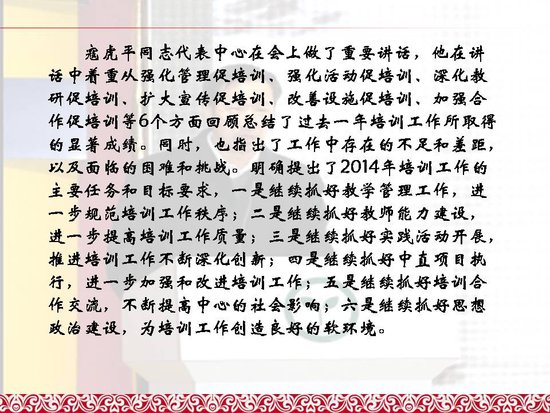 寇虎平同志代表中心在会上做了重要讲话，他在讲
话中着重从强化管理促培训、强化活动促培训、深化教
研促培训、扩大宣传促培训、改善设施促培训、加强合
作促培训等6个方面回顾总结了过去一年培训工作所取得
的显著成绩。同时，也指出了工作中存在的不足和差距，
以及面临的困难和挑战。明确提出了2014年培训工作的
主要任务和目标要求，一是继续抓好教学管理工作，进
一步规范培训工作秩序；二是继续抓好教师能力建设，
进一步提高培训工作质量；三是继续抓好实践活动开展，
推进培训工作不断深化创新；四是继续抓好中直项目执
行，进一步加强和改进培训工作；五是继续抓好培训合
作交流，不断提高中心的社会影响；六是继续抓好思想
政治建设，为培训工作创造良好的软环境。